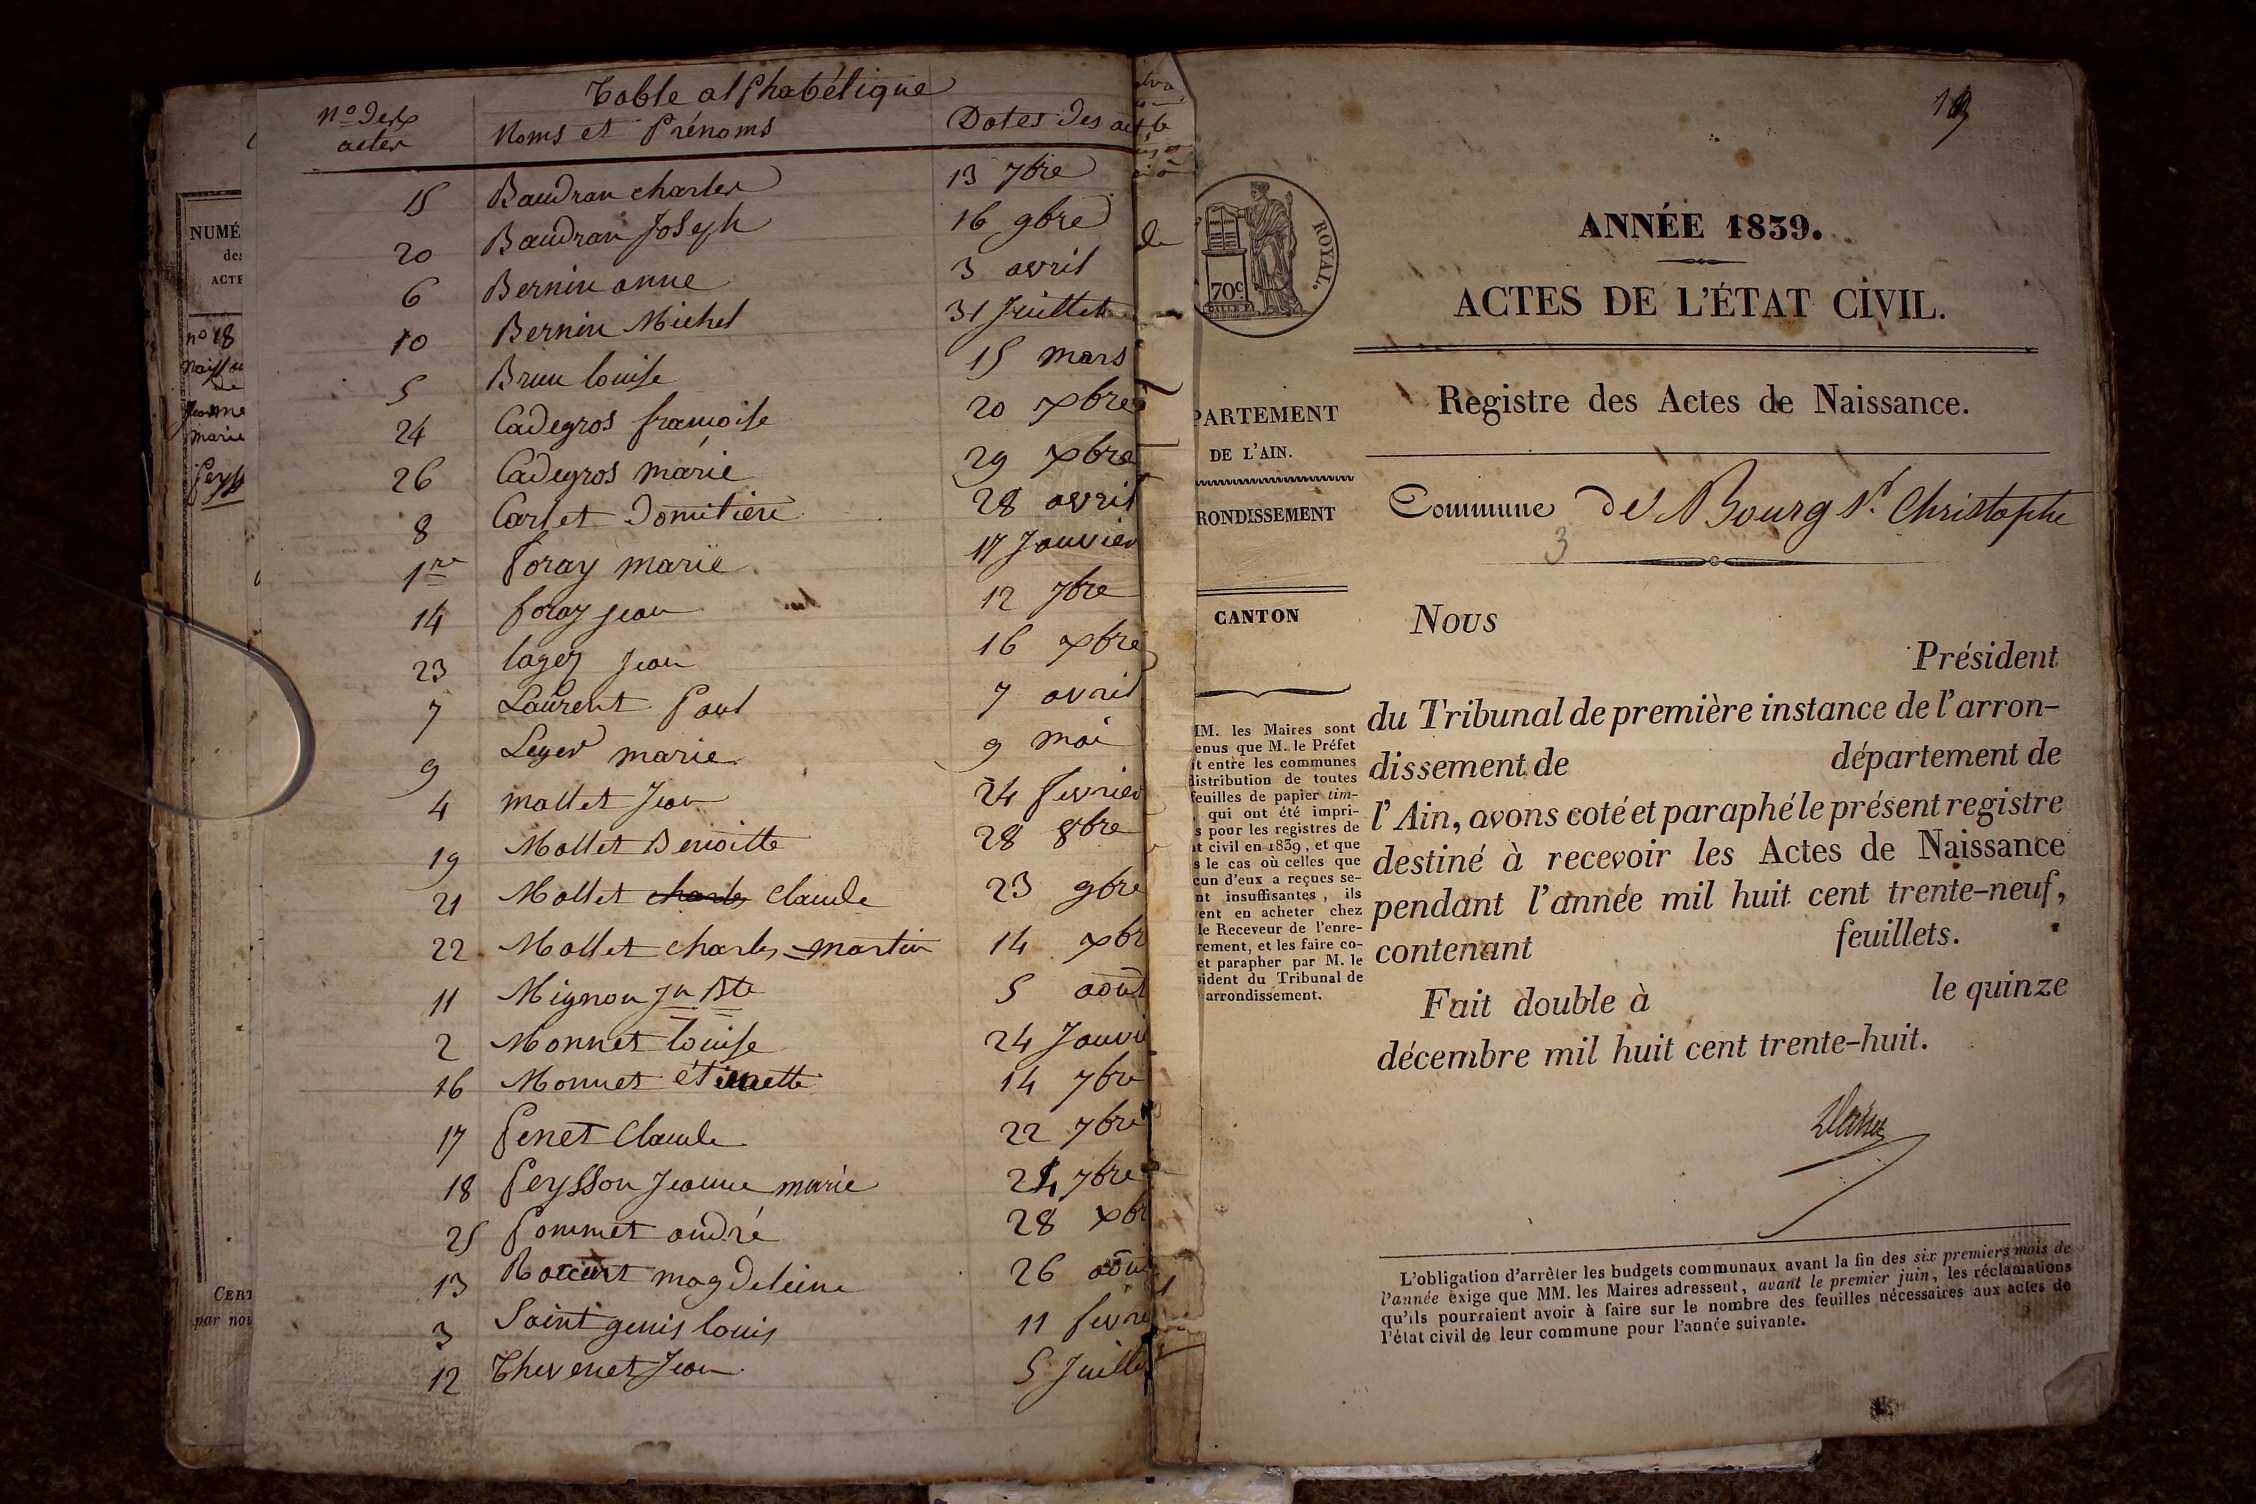 Table alphabétique
No des actes Noms et Prénoms Dates des act
15 Baudran charles 13 7bre
20 Baudran Joseph 16 9bre
6 Bernin anne 3 avril
10 Bernin Michel 31 Juillet
5 Brun louise 15 mars
24 Cadegros françoise 20 xbre
26 Cadegros marie 29 xbre
8 Carlet Domitiere 28 avril
1re foray marie 17 Janvier
14 foray jean 12 7bre
23 lager Jean 16 xbre
7 Laurent Paul 7 avril
9 Leger marie 9 mai
4 mollet Jean 24 fevrier
19 Mollet Benoitte 28 8bre
21 Mollet charles Claude 23 9bre
22 Mollet charles martin 14 xbr
11 Mignon Jn Bte 5 août
2 Monnet louise 24 Janvi
16 Monnet étiennette 14 7bre
17 Penet Claude 22 7bre
18 Peysson Jeanne marie 24 7bre
25 Pommet andré 28 xbr
13 magdeleine 26 août
3 Saint genis louis 11 fevri
12 Thevenet Jean 5 Juille
NUMÉ
des
ACTE
no 18
marie
CERT
par nou
ROYAL.
70c.
ANNÉE 1839.
ACTES DE L'ÉTAT CIVIL.
Registre des Actes de Naissance.
PARTEMENT
DE L'AIN.
RONDISSEMENT
Commune de Bourg St. Christophe
3
CANTON
MM. les Maires sont
enus que M. le Préfet
it entre les communes
distribution de toutes
feuilles de papier tim-
, qui ont été impri-
s pour les registres de
at civil en 1839, et que
s le cas où celles que
cun d'eux a reçues se-
nt insuffisantes, ils
vent en acheter chez
le Receveur de l'enre-
rement, et les faire co-
et parapher par M. le
sident du Tribunal de
arrondissement.
Nous
Président
du Tribunal de première instance de l'arron-
dissement de département de
l'Ain, avons coté et paraphé le présent registre
destiné à recevoir les Actes de Naissance
pendant l'année mil huit cent trente-neuf,
contenant feuillets.
Fait double à le quinze
décembre mil huit cent trente-huit.
L'obligation d'arrêter les budgets communaux avant la fin des six premiers mois de
l'année exige que MM. les Maires adressent, avant le premier juin, les réclamations
qu'ils pourraient avoir à faire sur le nombre des feuilles nécessaires aux actes de
l'état civil de leur commune pour l'année suivante.